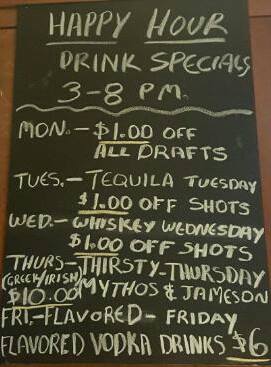 HAPPY HOUR
DRINK SPECIALS
3-8 PM.
MON.- $1.00 OFF
ALL DRAFTS
TUES.- TEQUILA TUESDAY
$1.00 OFF SHOTS
WED.- WHISKEY WEDNESDAY
$1.00 OFF SHOTS
THURS- THIRSTY-THURSDAY
(GREEK/IRISH) MYTHOS & JAMESON
$10.00
FRI.-FLAVORED- FRIDAY
FLAVORED VODKA DRINKS $6